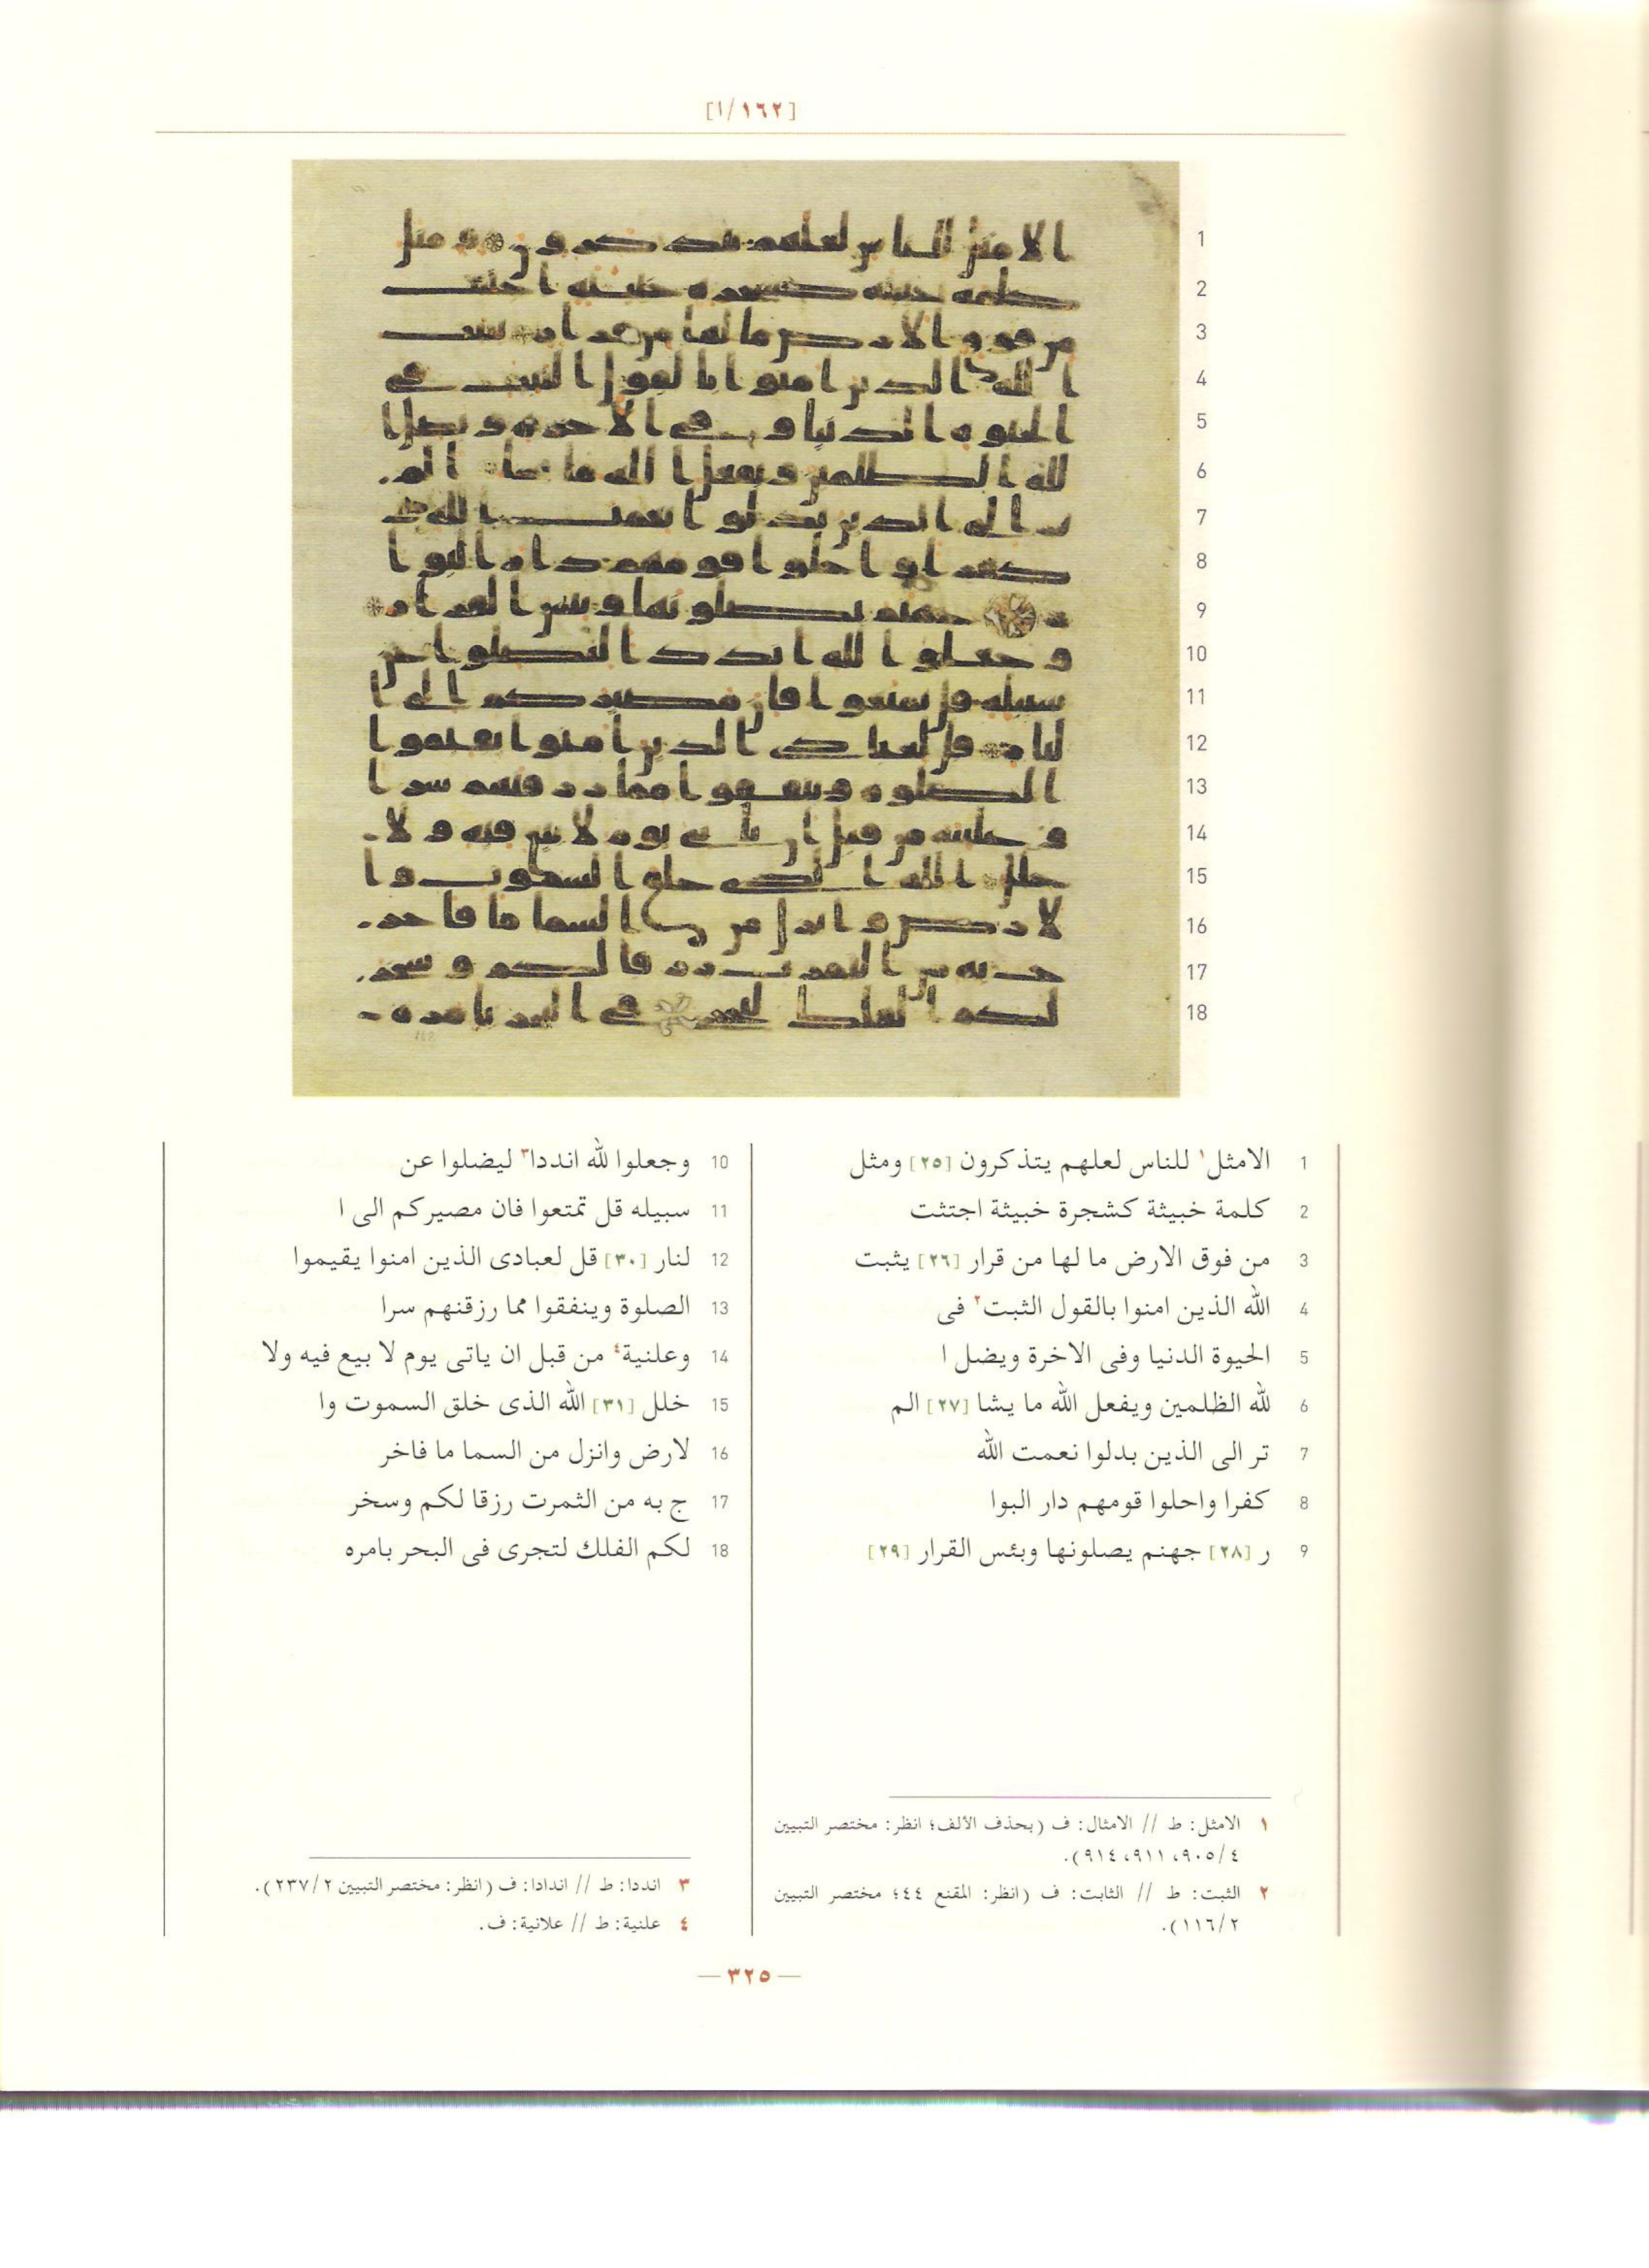 [١٦٢/ا]
1 الامثل١ للناس لعلهم يتذكرون [٢٥] ومثل
2 كلمة خبيثة كشجرة خبيثة اجتثت
3 من فوق الارض ما لها من قرار [٢٦] يثبت
4 الله الذين امنوا بالقول الثبت٢ فى
5 الحيوة الدنيا وفى الاخرة ويضل ا
6 لله الظلمين ويفعل الله ما يشا [٢٧] الم
7 تر الى الذين بدلوا نعمت الله
8 كفرا واحلوا قومهم دار البوا
9 ر [٢٨] جهنم يصلونها وبئس القرار [٢٩]
10 وجعلوا لله انددا٣ ليضلوا عن
11 سبيله قل تمتعوا فان مصيركم الى ا
12 لنار [٣٠] قل لعبادى الذين امنوا يقيموا
13 الصلوة وينفقوا مما رزقنهم سرا
14 وعلنية٤ من قبل ان ياتى يوم لا بيع فيه ولا
15 خلل [٣١] الله الذى خلق السموت وا
16 لارض وانزل من السما ما فاخر
17 ج به من الثمرت رزقا لكم وسخر
18 لكم الفلك لتجرى فى البحر بامره
١ الامثل: ط // الامثال: ف (بحذف الألف؛ انظر: مختصر التبيين
٤/٩٠٥، ٩١١، ٩١٤).
٢ الثبت: ط // الثابت: ف (انظر: المقنع ٤٤؛ مختصر التبيين
٢/١١٦).
٣ انددا: ط // اندادا: ف (انظر: مختصر التبيين ٢/٢٣٧).
٤ علنية: ط // علانية: ف.
— ٣٢٥ —